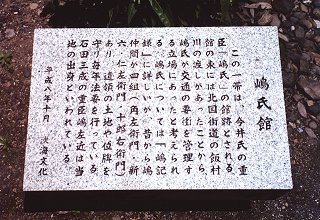 嶋氏館
この一帯は、今井氏の重
臣「嶋氏」の館跡とされる。
館の東には北国街道の飯村
川の渡しがあったことから、
嶋氏が交通の要衝を管理す
る立場にあったと考えられ
る。嶋氏については「嶋記
録」に詳しいが、昔から嶋
仲間が四組(角左衛門・新
六・仁左衛門・十郎右衛門)
あり、道領の土地や位牌を
守り毎年法要を行っている。
石田三成の重臣嶋左近は当
地の出身といわれている。
平成八年十月